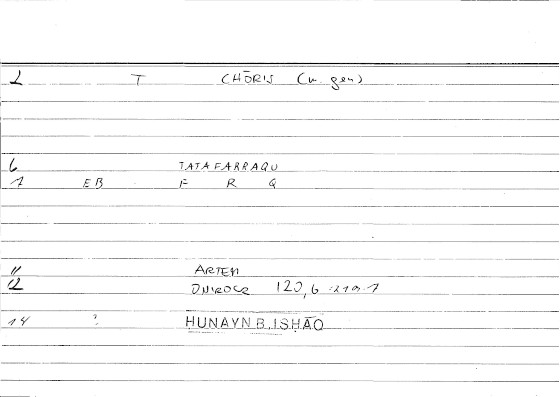 2 T CHŌRIS (w. gen)
6 TATAFARRAQU
7 EB F R Q
11 ARTEM
12 ONIROCR 120,6 :219-7
14 ? ḤUNAYN B. ISḤĀQ